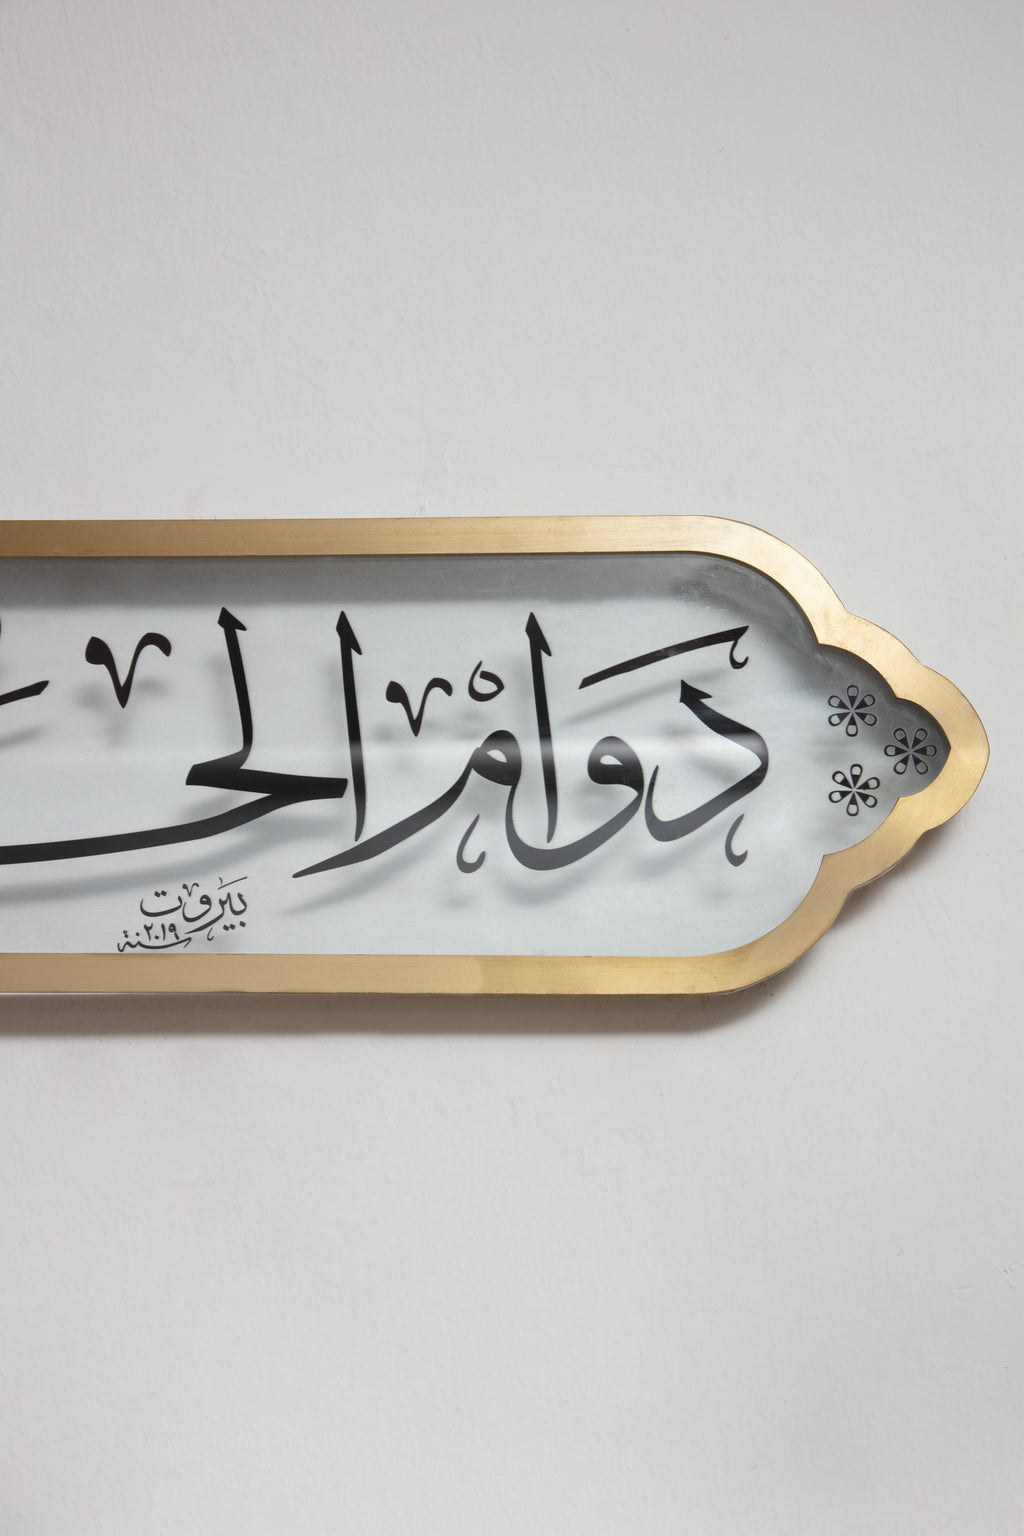 دَوَامُ الحَـ
بَيْرُوت
سنة ٢٠١٩